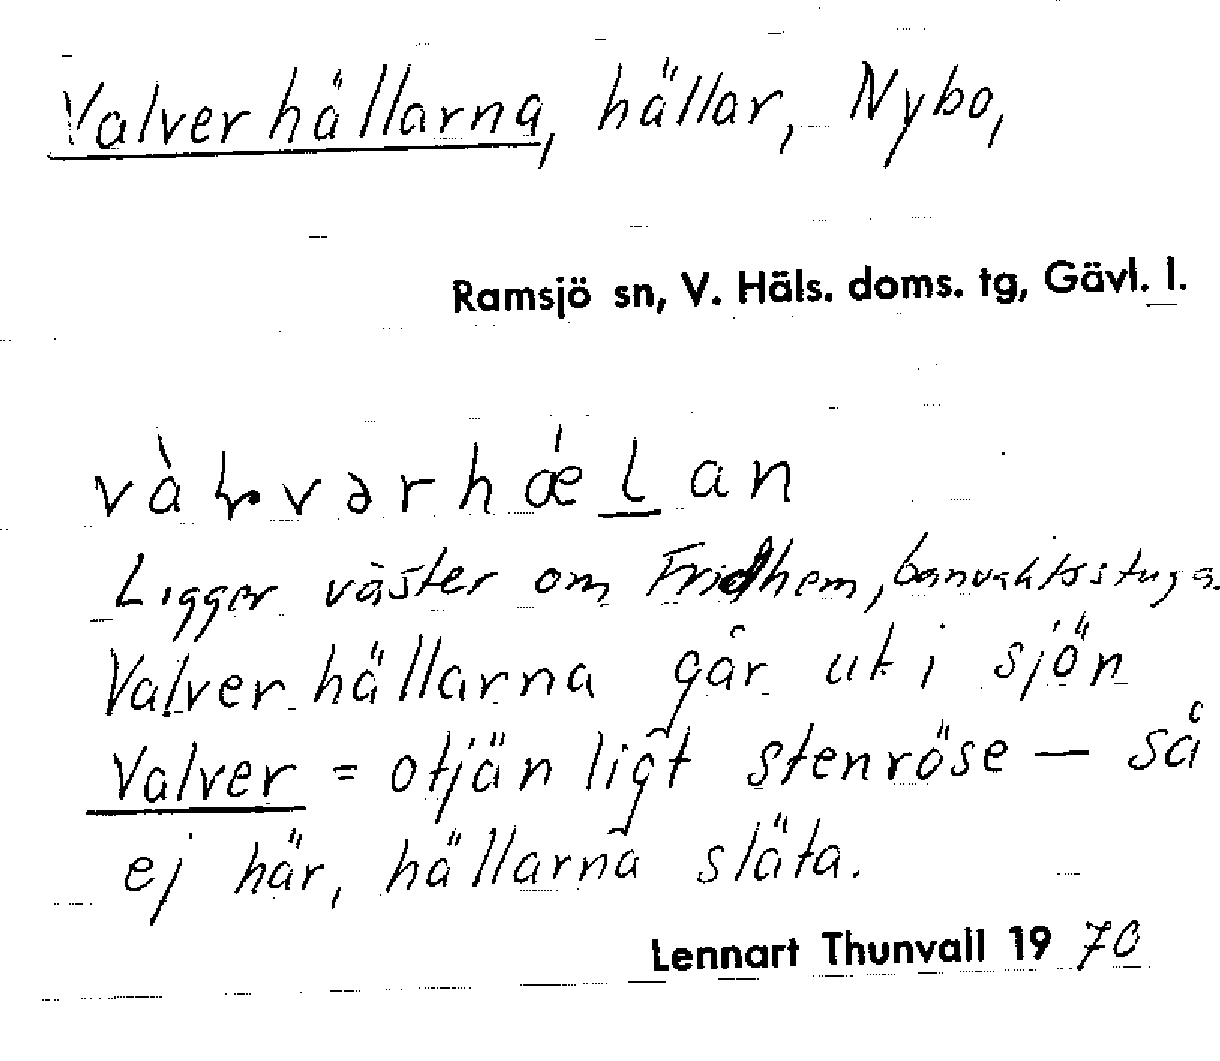 Valverhällarna, hällar, Nybo,
Ramsjö sn, V. Häls. doms. tg, Gävl. l.
Ligger väster om Fridhem, banvaktsstuga.
Valverhällarna går ut i sjön
Valver = otjänligt stenröse — så
ej här, hällarna släta.
Lennart Thunvall 1970